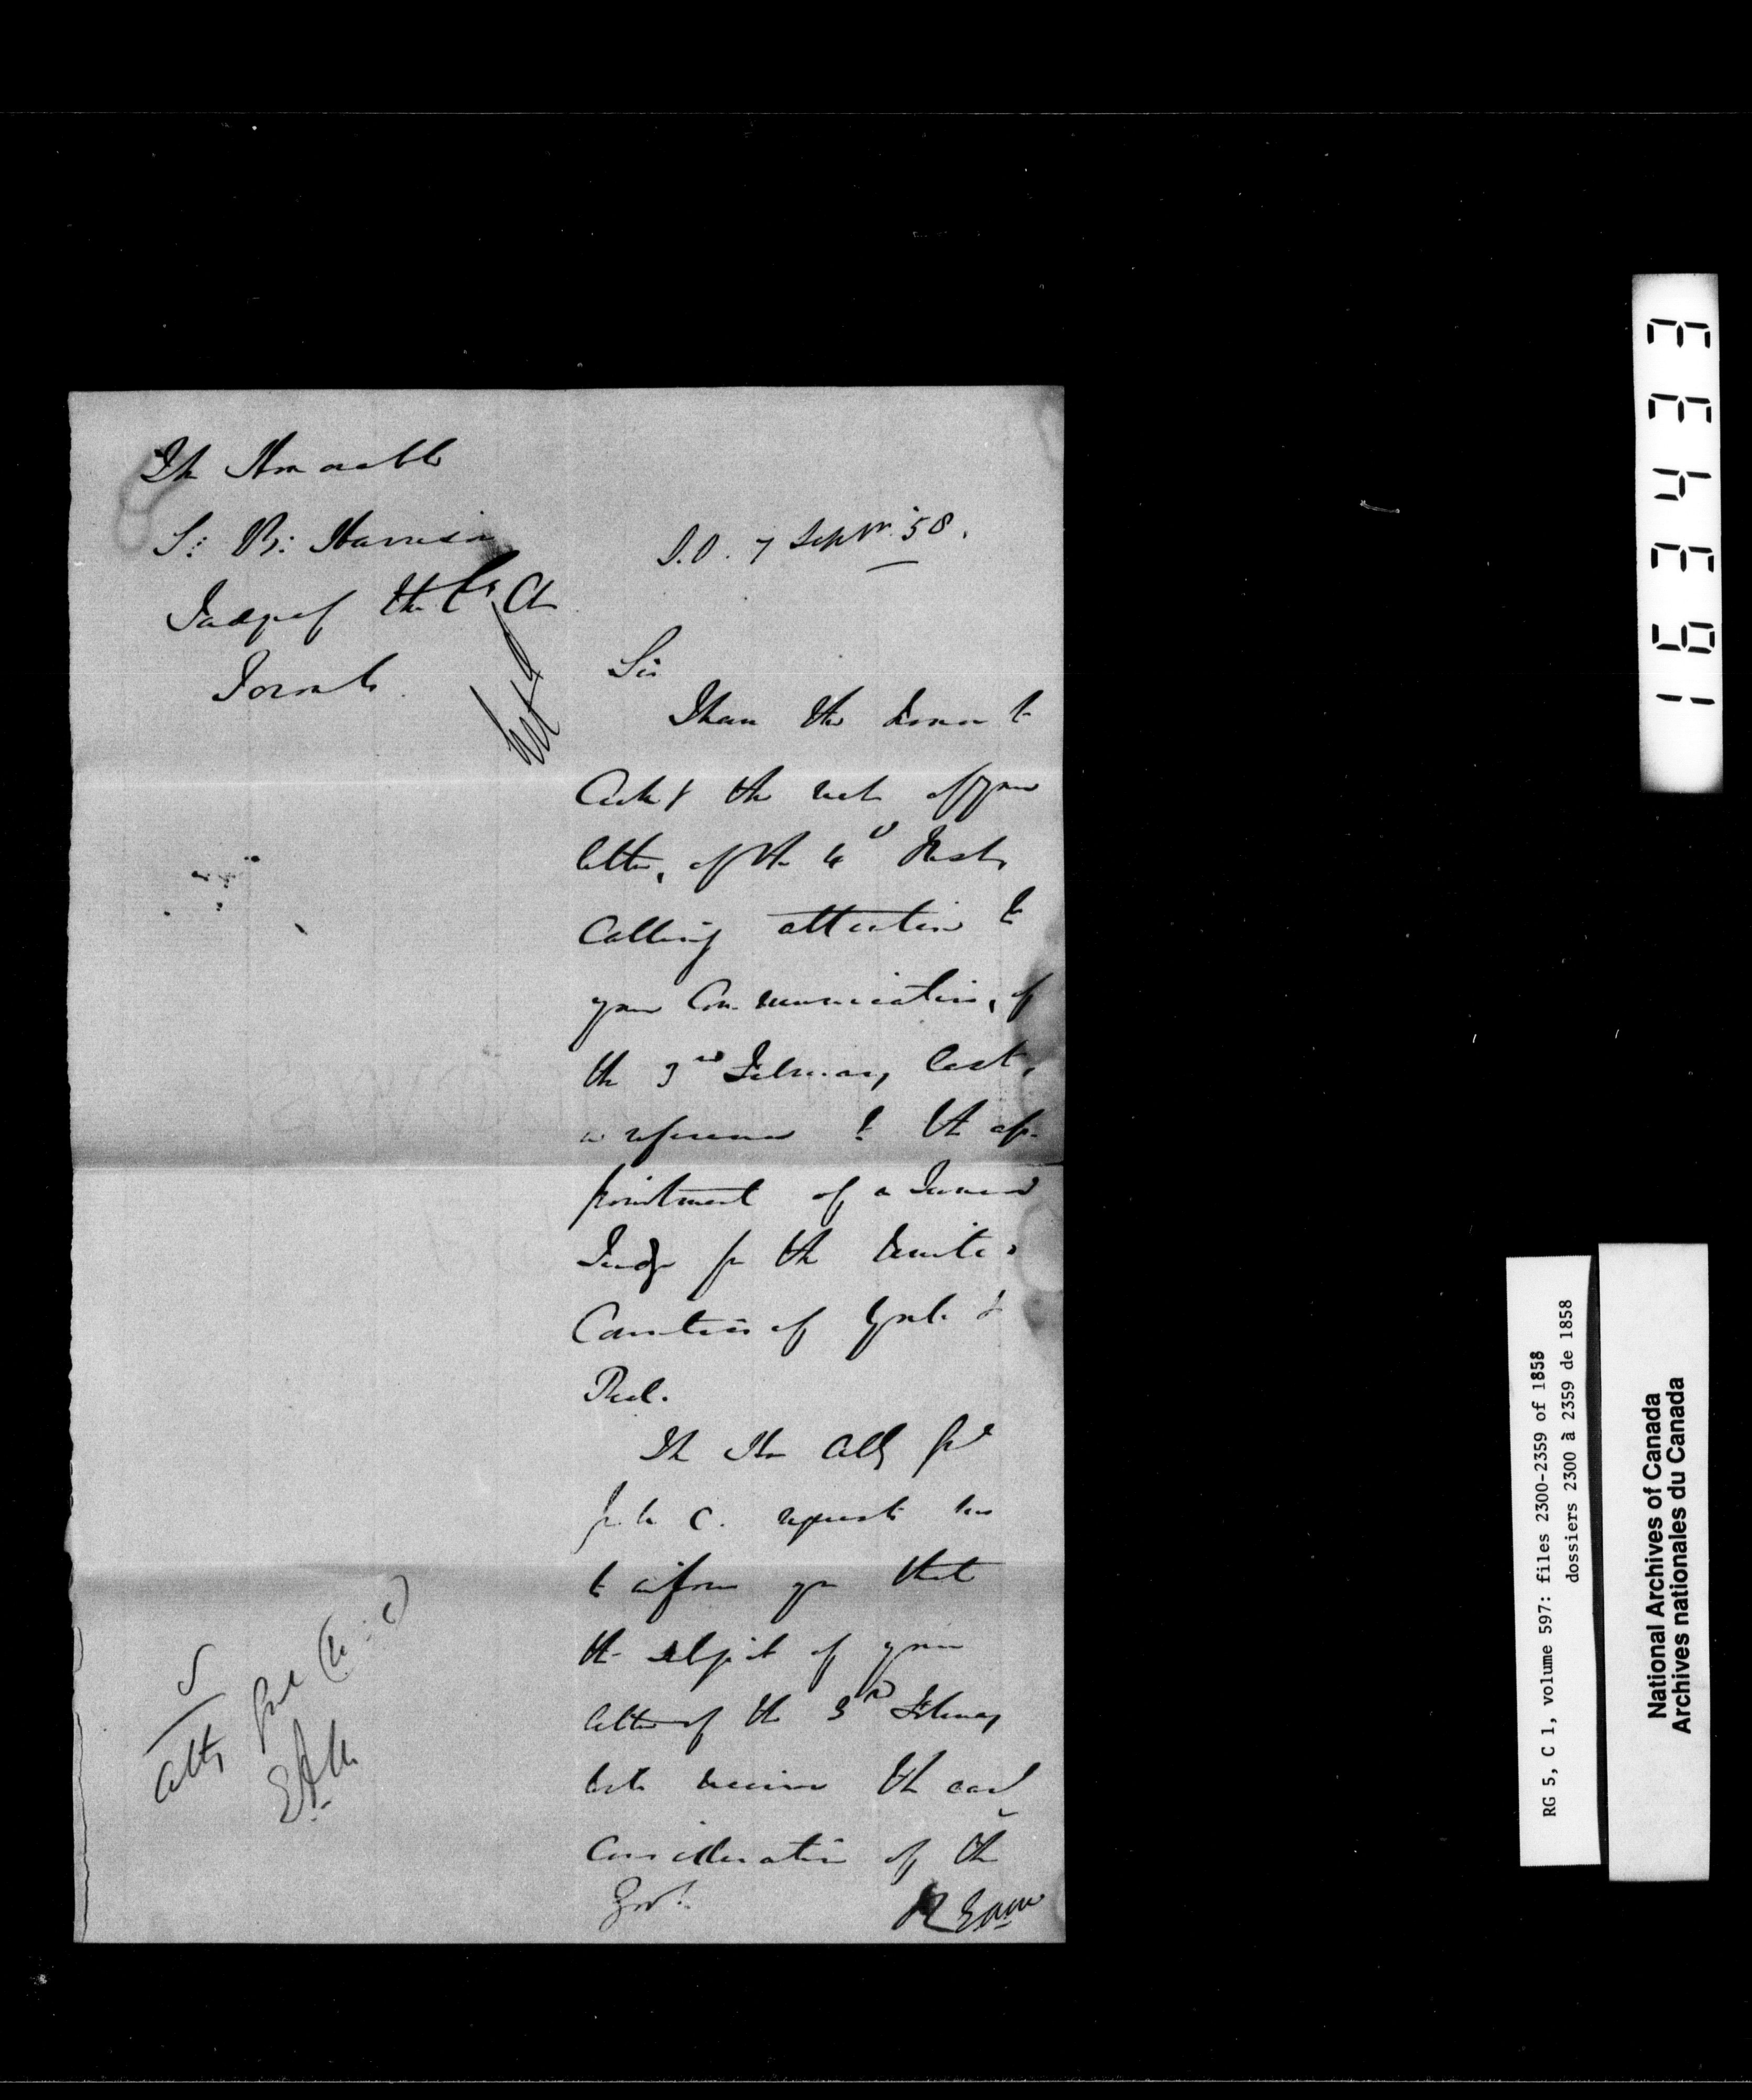 The Honorable
S: B: Harrison
Judge of the Co. Ct
Toronto.
S.O. 7 Septr. '58.
Sir
I have the honor to
Ackn the rect of your
letter, of the 4th Inst,
Calling attention to
your Communication, of
the 3rd February last,
in reference to the ap-
pointment of a Junior
Judge for the United
Counties of York &
Peel.
The Hon Atty Genl
for U. C. requests me
to inform you that
the subject of your
letter of the 3rd February
last receive the
Consideration of the
Govt.
Atty Genl (U. C)
RG 5, C 1, volume 597: files 2300-2359 of 1858
dossiers 2300 à 2359 de 1858
National Archives of Canada
Archives nationales du Canada